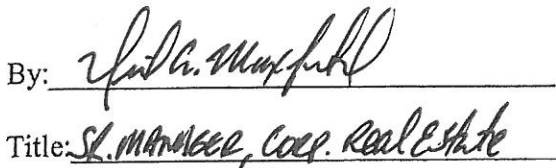 By: 
Title: SR. MANAGER, CORP. Real Estate